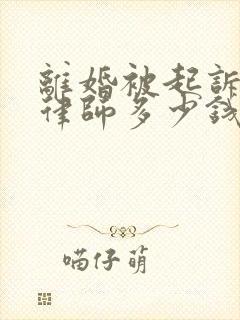 離婚被起訴
律師多少錢
喵仔萌